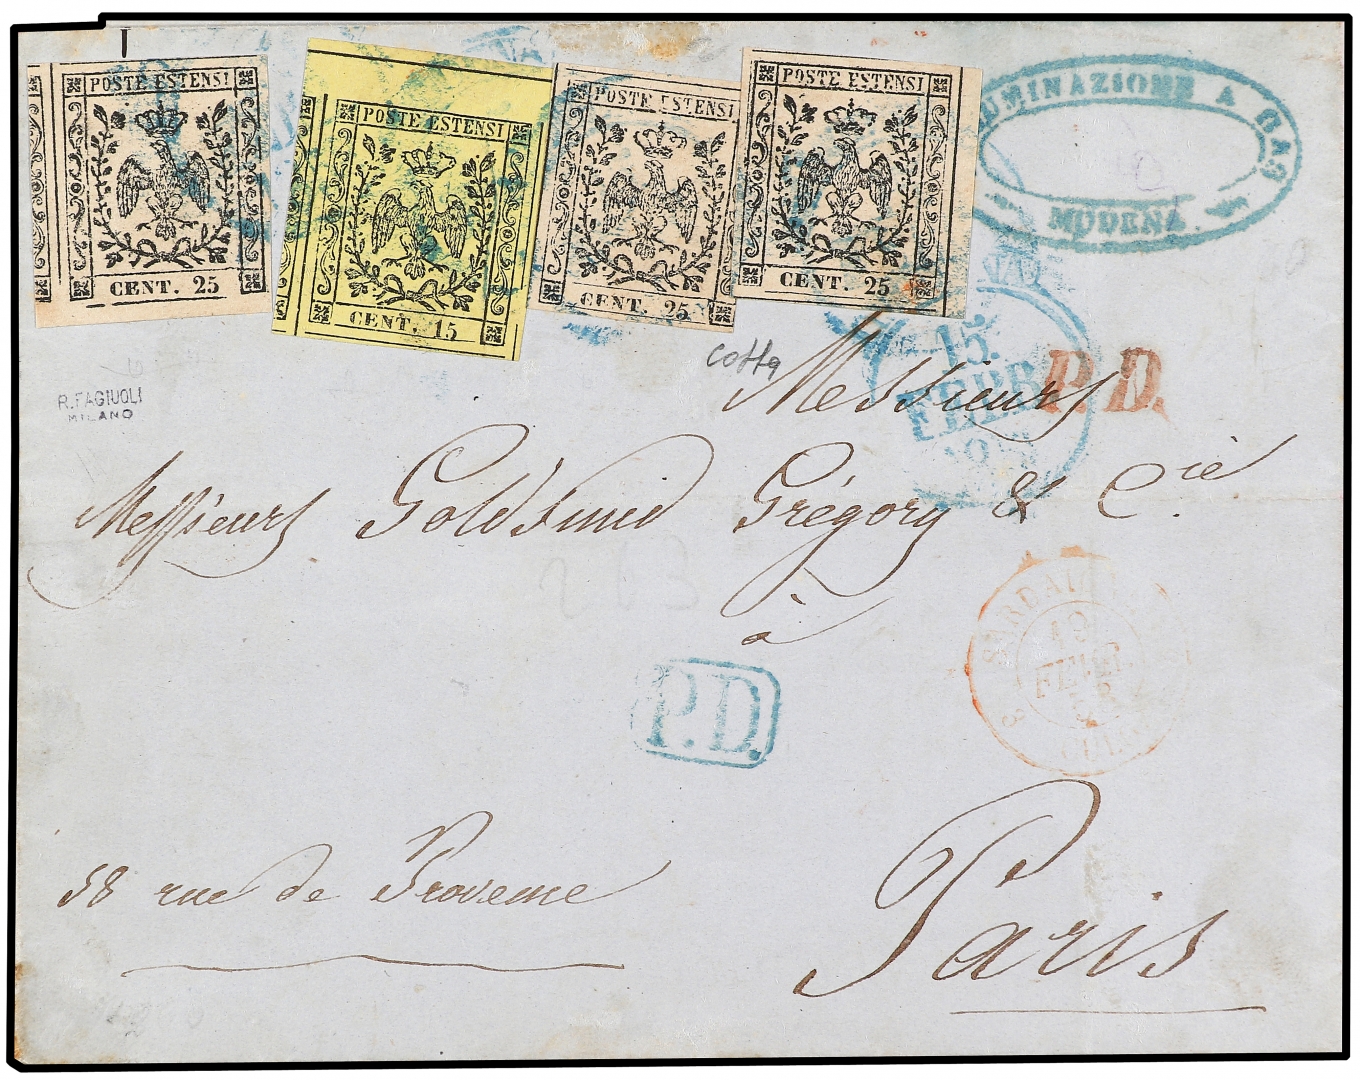 POSTE ESTENSI
CENT. 25
POSTE ESTENSI
CENT. 15
POSTE ESTENSI
CENT. 25
POSTE ESTENSI
CENT. 25
LUMINAZIONE A GAS
MODENA
15
FEBB
P. D.
cotta
R. FAGIUOLI
MILANO
Messieurs
Messieurs Goldsmid Grégory & Cie
à
19
P.D.
58 rue de Provence
Paris